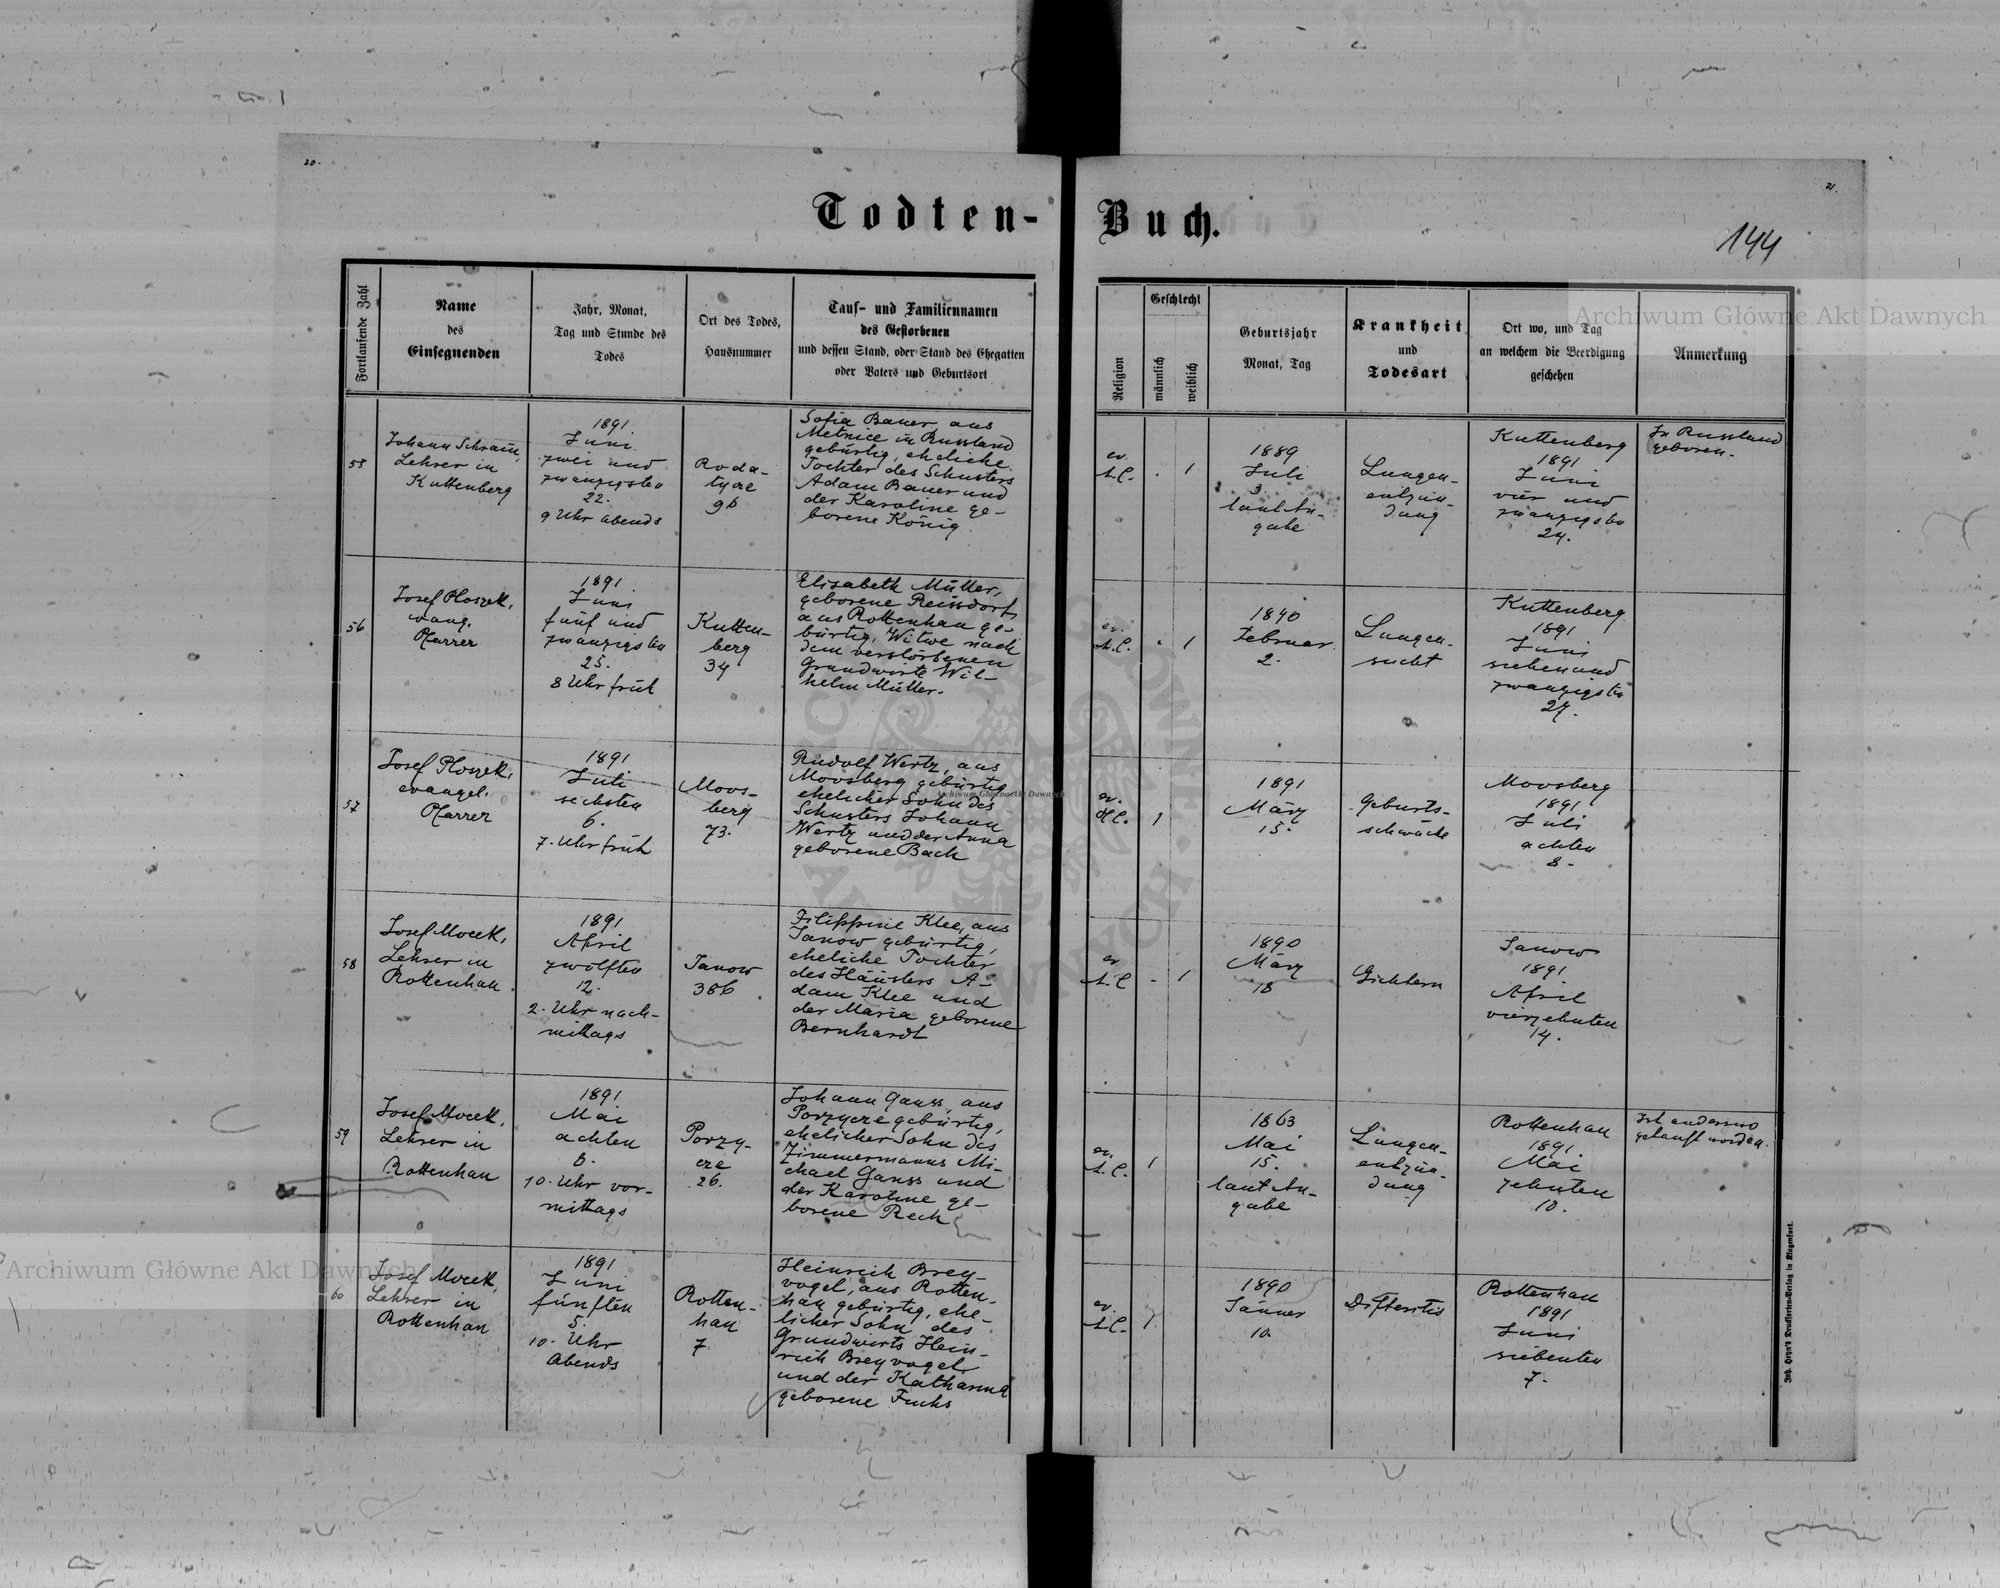 20.
21.
Todten-Buch.
144
Archiwum Główne Akt Dawnych
Fortlaufende Zahl
Name
des
Einsegnenden
Jahr, Monat,
Tag und Stunde des
Todes
Ort des Todes,
Hausnummer
Tauf- und Familiennamen
des Gestorbenen
und dessen Stand, oder Stand des Ehegatten
oder Vaters und Geburtsort
Religion
Geschlecht
männlich
weiblich
Geburtsjahr
Monat, Tag
Krankheit
und
Todesart
Ort wo, und Tag
an welchem die Beerdigung
geschehen
Anmerkung
55
Johann Schram,
Lehrer in
Kuttenberg
1891.
Juni
zwei und
zwanzigsten
22.
9 Uhr abends
Roda-
tycze
96
Sofia Bauer, aus
Metnice in Russland
gebürtig, eheliche
Tochter des Schusters
Adam Bauer und
der Karoline ge-
borene König
ev.
A.C.
1
1889
Juli
3.
laut An-
gabe
Lungen-
entzün-
dung
Kuttenberg
1891
Juni
vier und
zwanzigsten
24.
In Russland
geboren.
56
Josef Ploszek,
evang.
Pfarrer
1891
Juni
fünf und
zwanzigsten
25.
8 Uhr früh
Kutten-
berg
34
Elisabeth Müller,
geborene Reissdorf,
aus Rottenhan ge-
bürtig, Witwe nach
dem verstorbenen
Grundwirte Wil-
helm Müller.
ev.
A.C.
1
1840
Februar
2.
Lungen-
sucht
Kuttenberg
1891
Juni
sieben und
zwanzigsten
27.
57
Josef Ploszek,
evangel.
Pfarrer
1891.
Juli
sechsten
6.
7. Uhr früh
Moos-
berg
73.
Rudolf Wertz, aus
Moosberg gebürtig
ehelicher Sohn des
Schusters Johann
Wertz und der Anna
geborene Bach
ev.
H.C.
1
1891
März
15.
Geburts-
schwäche
Moosberg
1891
Juli
achten
8.
58
Josef Mocek,
Lehrer in
Rottenhan
1891
April
zwölften
12.
2. Uhr nach-
mittags
Janow
386
Filippine Klee, aus
Janow gebürtig,
eheliche Tochter
des Häuslers A-
dam Klee und
der Maria geborene
Bernhardt
ev.
A.C.
1
1890
März
18
Gichtern
Janow
1891
April
vierzehnten
14.
59
Josef Mocek,
Lehrer in
Rottenhan
1891
Mai
achten
8.
10. Uhr vor-
mittags
Porzy-
cze
26.
Johann Ganss, aus
Porzycze gebürtig,
ehelicher Sohn des
Zimmermanns Mi-
chael Ganss und
der Karoline ge-
borene Rech
ev.
A.C.
1
1863
Mai
15.
laut An-
gabe
Lungen-
entzün-
dung
Rottenhan
1891.
Mai
zehnten
10.
Ist anderswo
getauft worden.
60
Josef Mocek,
Lehrer in
Rottenhan
1891
Juni
fünften
5.
10. Uhr
abends
Rotten-
han
7
Heinrich Brey-
vogel, aus Rotten-
han gebürtig, ehe-
licher Sohn des
Grundwirts Hein-
rich Breyvogel
und der Katharina
geborene Fuchs
ev.
A.C.
1.
1890
Jänner
10.
Difteritis
Rottenhan
1891
Juni
siebenten
7.
Archiwum Główne Akt Dawnych
Archiwum Główne Akt Dawnych
Joh. Heyn's Drucksorten-Verlag in Klagenfurt.